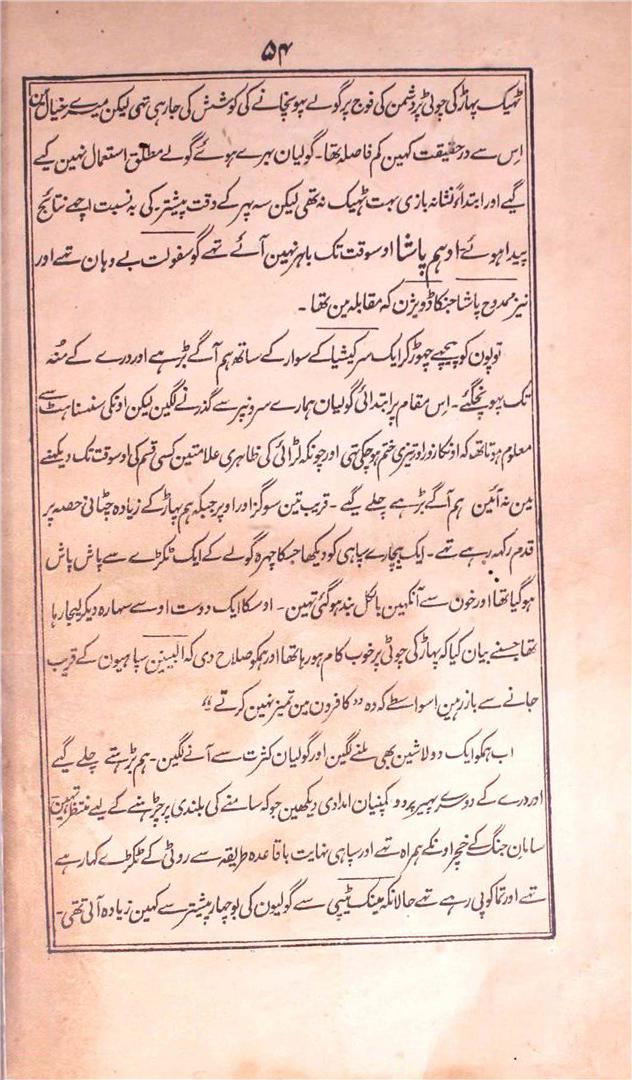 ۵۴
ٹھیک پہاڑ کی چوٹی پر دشمن کی فوج پر گولے پہونچانے کی کوشش کی جارہی تہی لیکن میرے خیال مین
اِس سے درحقیقت کہین کم فاصلہ تھا۔ گولیان بہرے ہوئے گولے مطلق استعمال نہین کیے
گیے اور ابتداءً نشانہ بازی بہت ٹہیک نہ تھی لیکن سہ پہر کے وقت پیشتر کی بہ نسبت اچھے نتائج
پیدا ہوئے۔ ادہم پاشا اوسوقت تک باہر نہین آئے تہے گو سفولت بے وہان تہے اور
نیز ممدوح پاشا جنکا ڈویژن کہ مقابلہ مین تھا۔
توپون کو پیچہے چھوڑ کر ایک سرکیشیا کے سوار کے ساتھ ہم آگے بڑہے اور درے کے مُنہ
تک پہونچگئے۔ اس مقام پر ابتدائی گولیان ہمارے سرونپر سے گذرنے لگین لیکن اونکی سنسناہٹ سے
معلوم ہوتا تھا کہ اونکا زور اور تیزی ختم ہوچکی تہی اور چونکہ لڑائی کی ظاہری علامتین کسی قسم کی اوسوقت تک دیکہنے
مین نہ آئین ہم آگے بڑہے چلے گیے۔ قریب تین سو گز اور اوپر جبکہ ہم پہاڑ کے زیادہ چٹانی حصہ پر
قدم رکہہ رہے تہے۔ ایک بیچارے سپاہی کو دیکھا جسکا چہرہ گولے کے ایک ٹکڑے سے پاش پاش
ہوگیا تھا اور خون سے آنکہین بالکل بند ہوگئی تہین۔ اوسکا ایک دوست اوسے سہارہ دیکر لیجارہا
تھا جسنے بیان کیا کہ پہاڑ کی چوٹی پر خوب کام ہورہا تھا اور ہمکو صلاح دی کہ البینین سپاہیون کے قریب
جانے سے باز رہین اسواسطے کہ وہ "کافرون مین تمیز نہین کرتے"
اب ہمکو ایک دو لاشین بھی ملنے لگین اور گولیان کثرت سے آنے لگین۔ ہم بڑہتے چلے گیے
اور درے کے دوسرے پہیر پر دو کمپنیان امدادی دیکھین جو کہ سامنے کی بلندی پر چڑہنے کے لیے منتظر تہین
سامان جنگ کے خچر اونکے ہمراہ تہے اور سپاہی نہایت باقاعدہ طریقہ سے روٹی کے ٹکڑے کہا رہے
تہے اور تماکو پی رہے تہے حالانکہ مینک ٹیپی سے گولیون کی بوچھار پیشتر سے کہین زیادہ آتی تھی۔